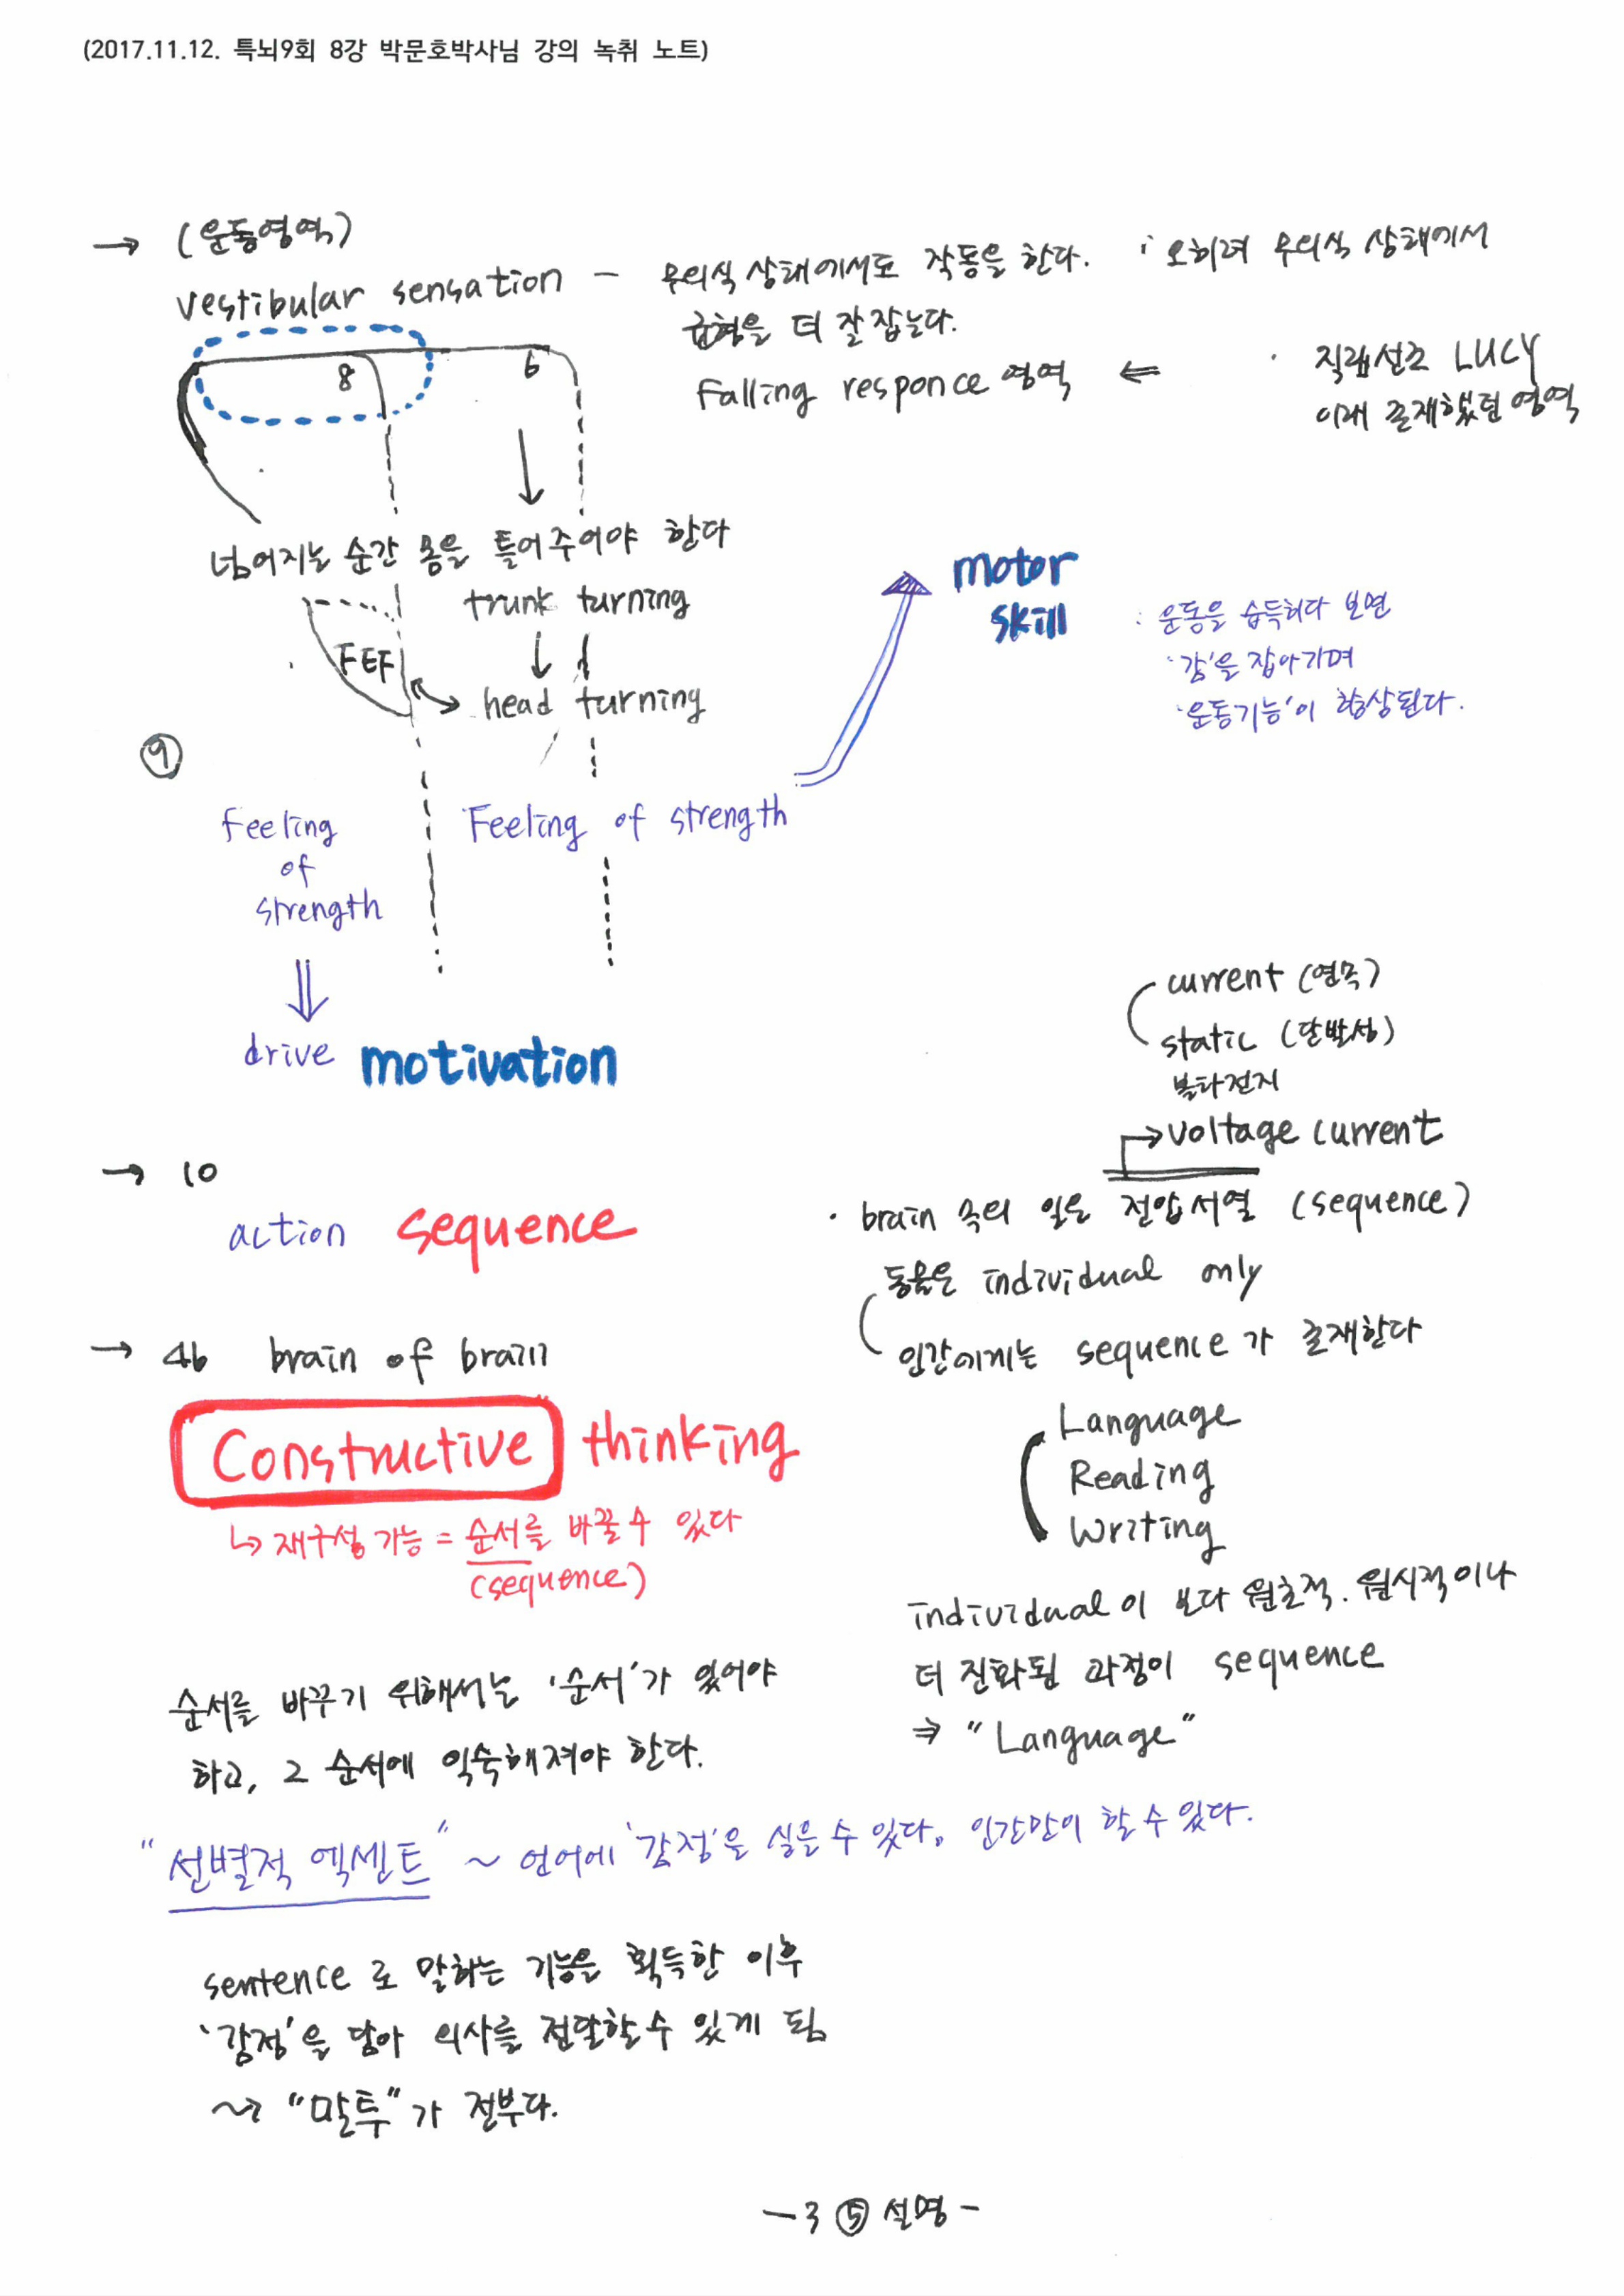 (2017.11.12. 특뇌9회 8강 박문호박사님 강의 녹취 노트)
→ (운동영역)
vestibular sensation – 무의식 상태에서도 작동을 한다. : 오히려 무의식 상태에서
균형을 더 잘 잡는다.
8 6
Falling responce 영역 ⇐ · 직립선조 LUCY
이래 존재했던 영역
넘어지는 순간 몸을 틀어주어야 한다
trunk turning
FEF
head turning
motor
skill
: 운동을 습득하다 보면
'감'을 잡아가며
'운동기능'이 향상된다.
⑨
Feeling
of
strength
Feeling of strength
⇓
drive motivation
→ 10
action sequence
→ 46 brain of brain
Constructive thinking
↳ 재구성 가능 = 순서를 바꿀 수 있다
(sequence)
순서를 바꾸기 위해서는 '순서'가 있어야
하고, 그 순서에 익숙해져야 한다.
current (연속)
static (단발성)
볼타전지
→ voltage current
· brain 속의 일은 전압서열 (sequence)
동물은 individual only
인간에게는 sequence가 존재한다
Language
Reading
Writing
individual이 보다 원초적. 원시적이나
더 진화된 과정이 sequence
⇒ "Language"
"선별적 엑센트" ~ 언어에 '감정'을 실을 수 있다. 인간만이 할 수 있다.
sentence로 말하는 기능을 획득한 이후
'감정'을 담아 의사를 전달할 수 있게 됨
~→ "말투"가 전부다.
– 3 ⑤ 설명 –